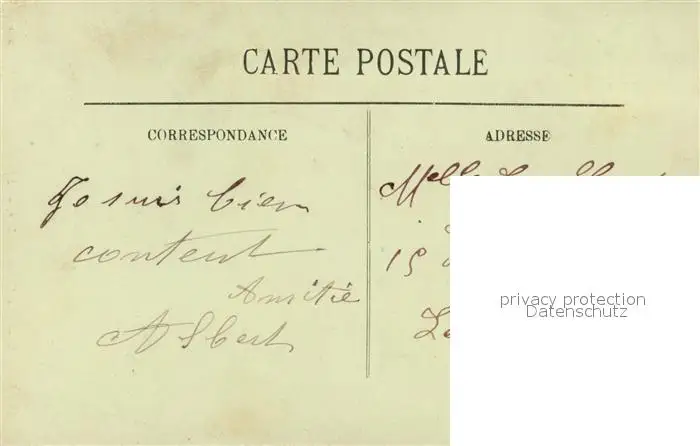 CARTE POSTALE
CORRESPONDANCE
ADRESSE
Je suis bien
content
Amitié
Albert
Melle
15
privacy protection
Datenschutz